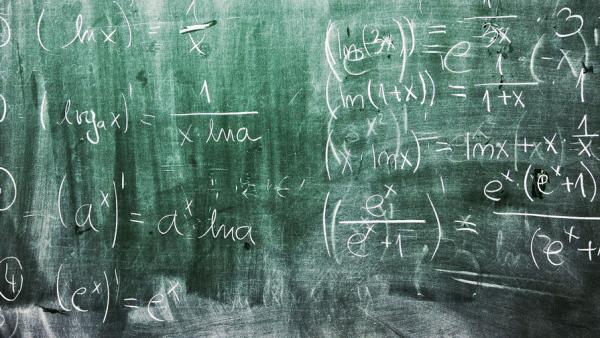 (ln x)' = 1/x
(log_a x)' = 1/(x · ln a)
(a^x)' = a^x · ln a
4 (e^x)' = e^x
(ln(3x))' = 1/3x · 3
(ln(1+x))' = 1/(1+x)
(x · ln x)' = ln x + x · 1/x
(e^x/(e^x+1))' = e^x · (e^x+1) / (e^x+1